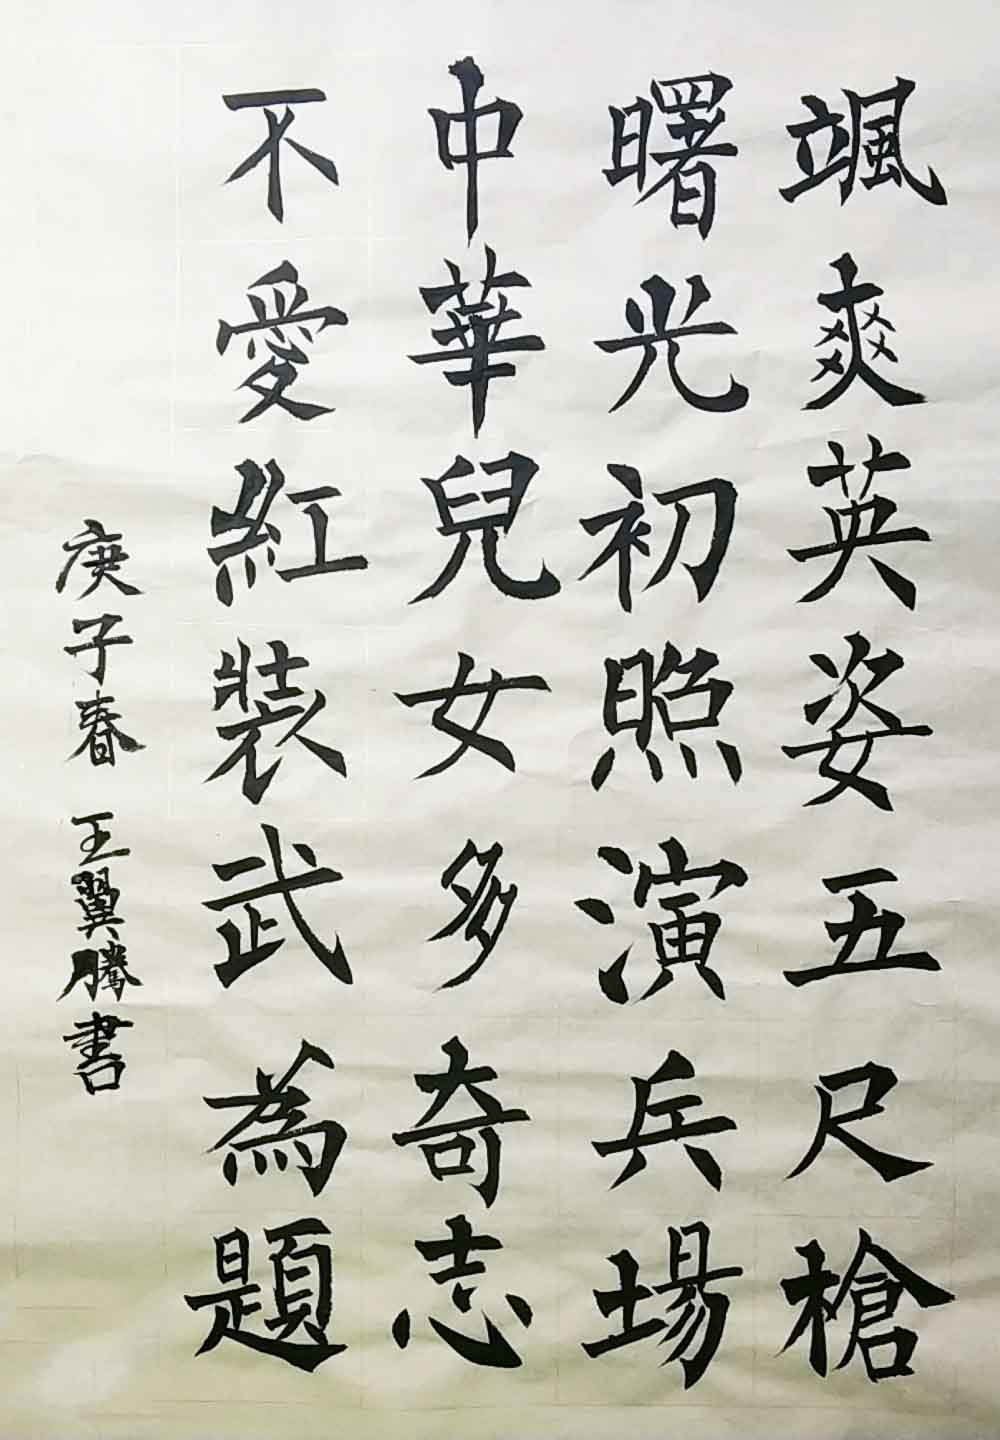 颯爽英姿五尺槍
曙光初照演兵場
中華兒女多奇志
不愛紅裝武為題
庚子春 王翼騰書